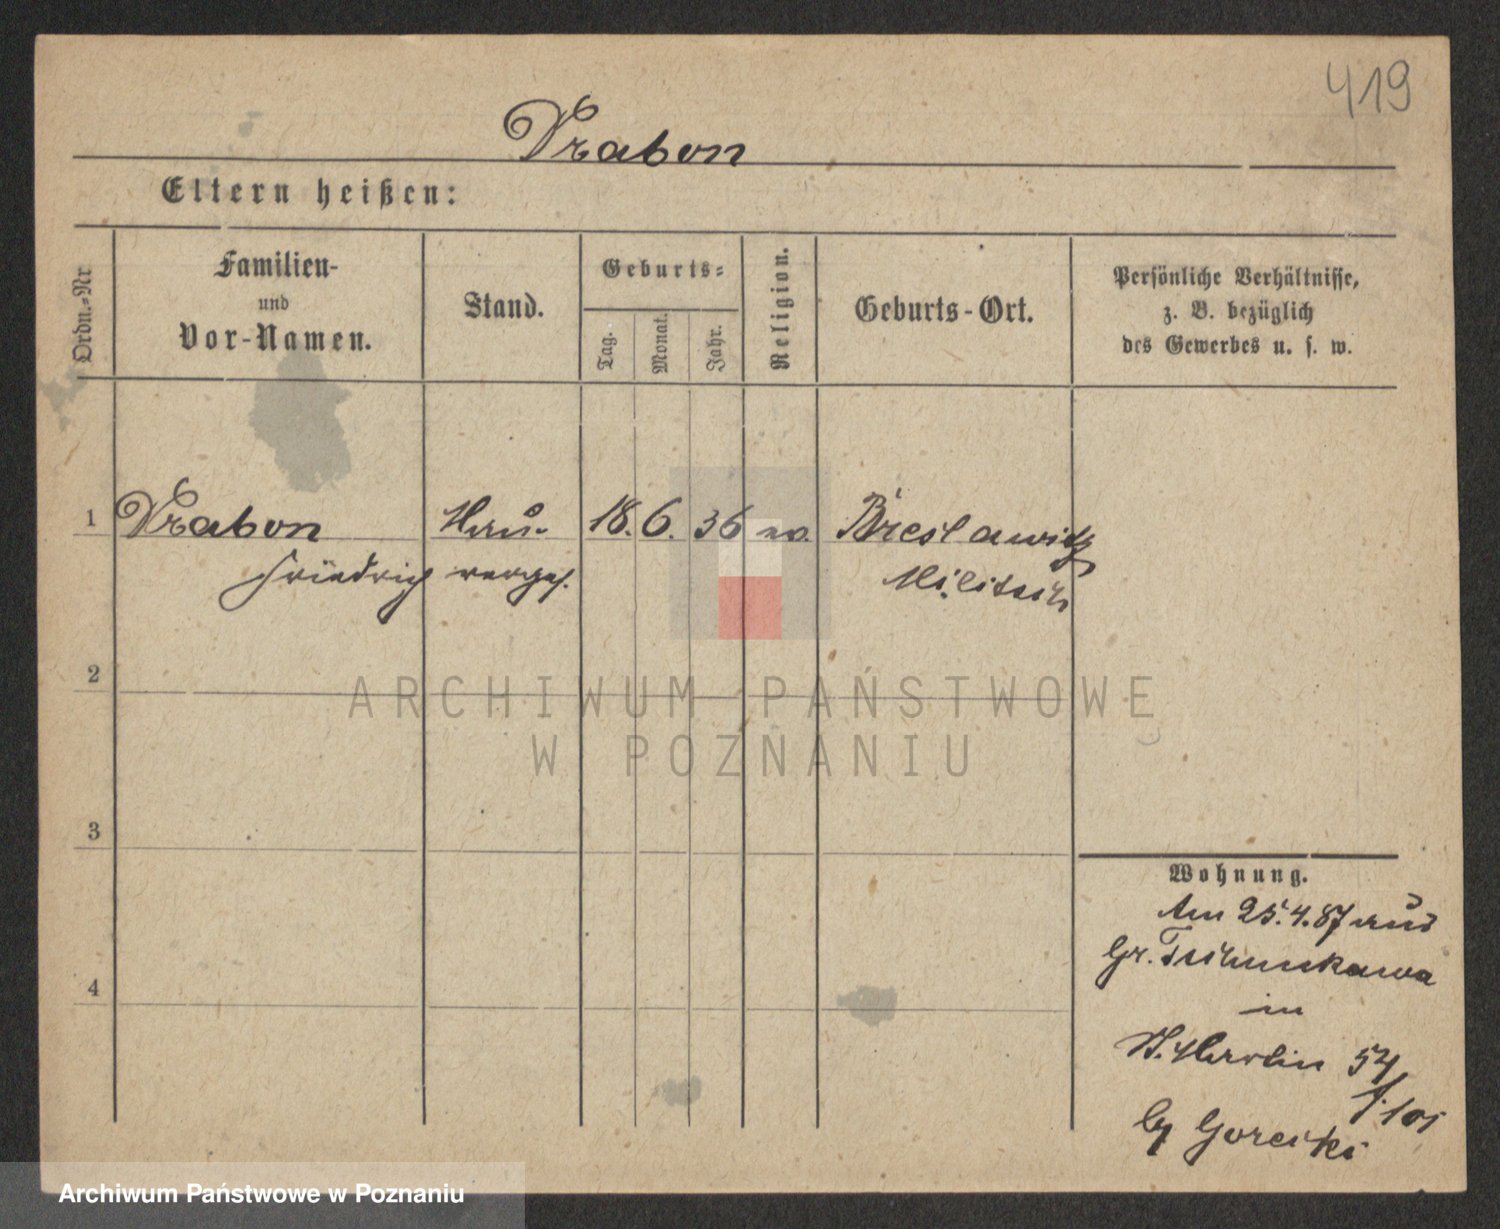 419
Vrabon
Eltern heißen:
Ordn.=Nr
Familien-
und
Vor-Namen.
Stand.
Geburts=
Tag.
Monat.
Jahr.
Religion.
Geburts-Ort.
Persönliche Verhältnisse,
z. B. bezüglich
des Gewerbes u. s. w.
1 Vrabon 18. 6. 36 Breslawitz
Friedrich Militsch
2
3
4
Wohnung.
Am 25.4.87 aus
Gr.
in
St. Martin 54
by Gorecki
ARCHIWUM PAŃSTWOWE
W POZNANIU
Archiwum Państwowe w Poznaniu